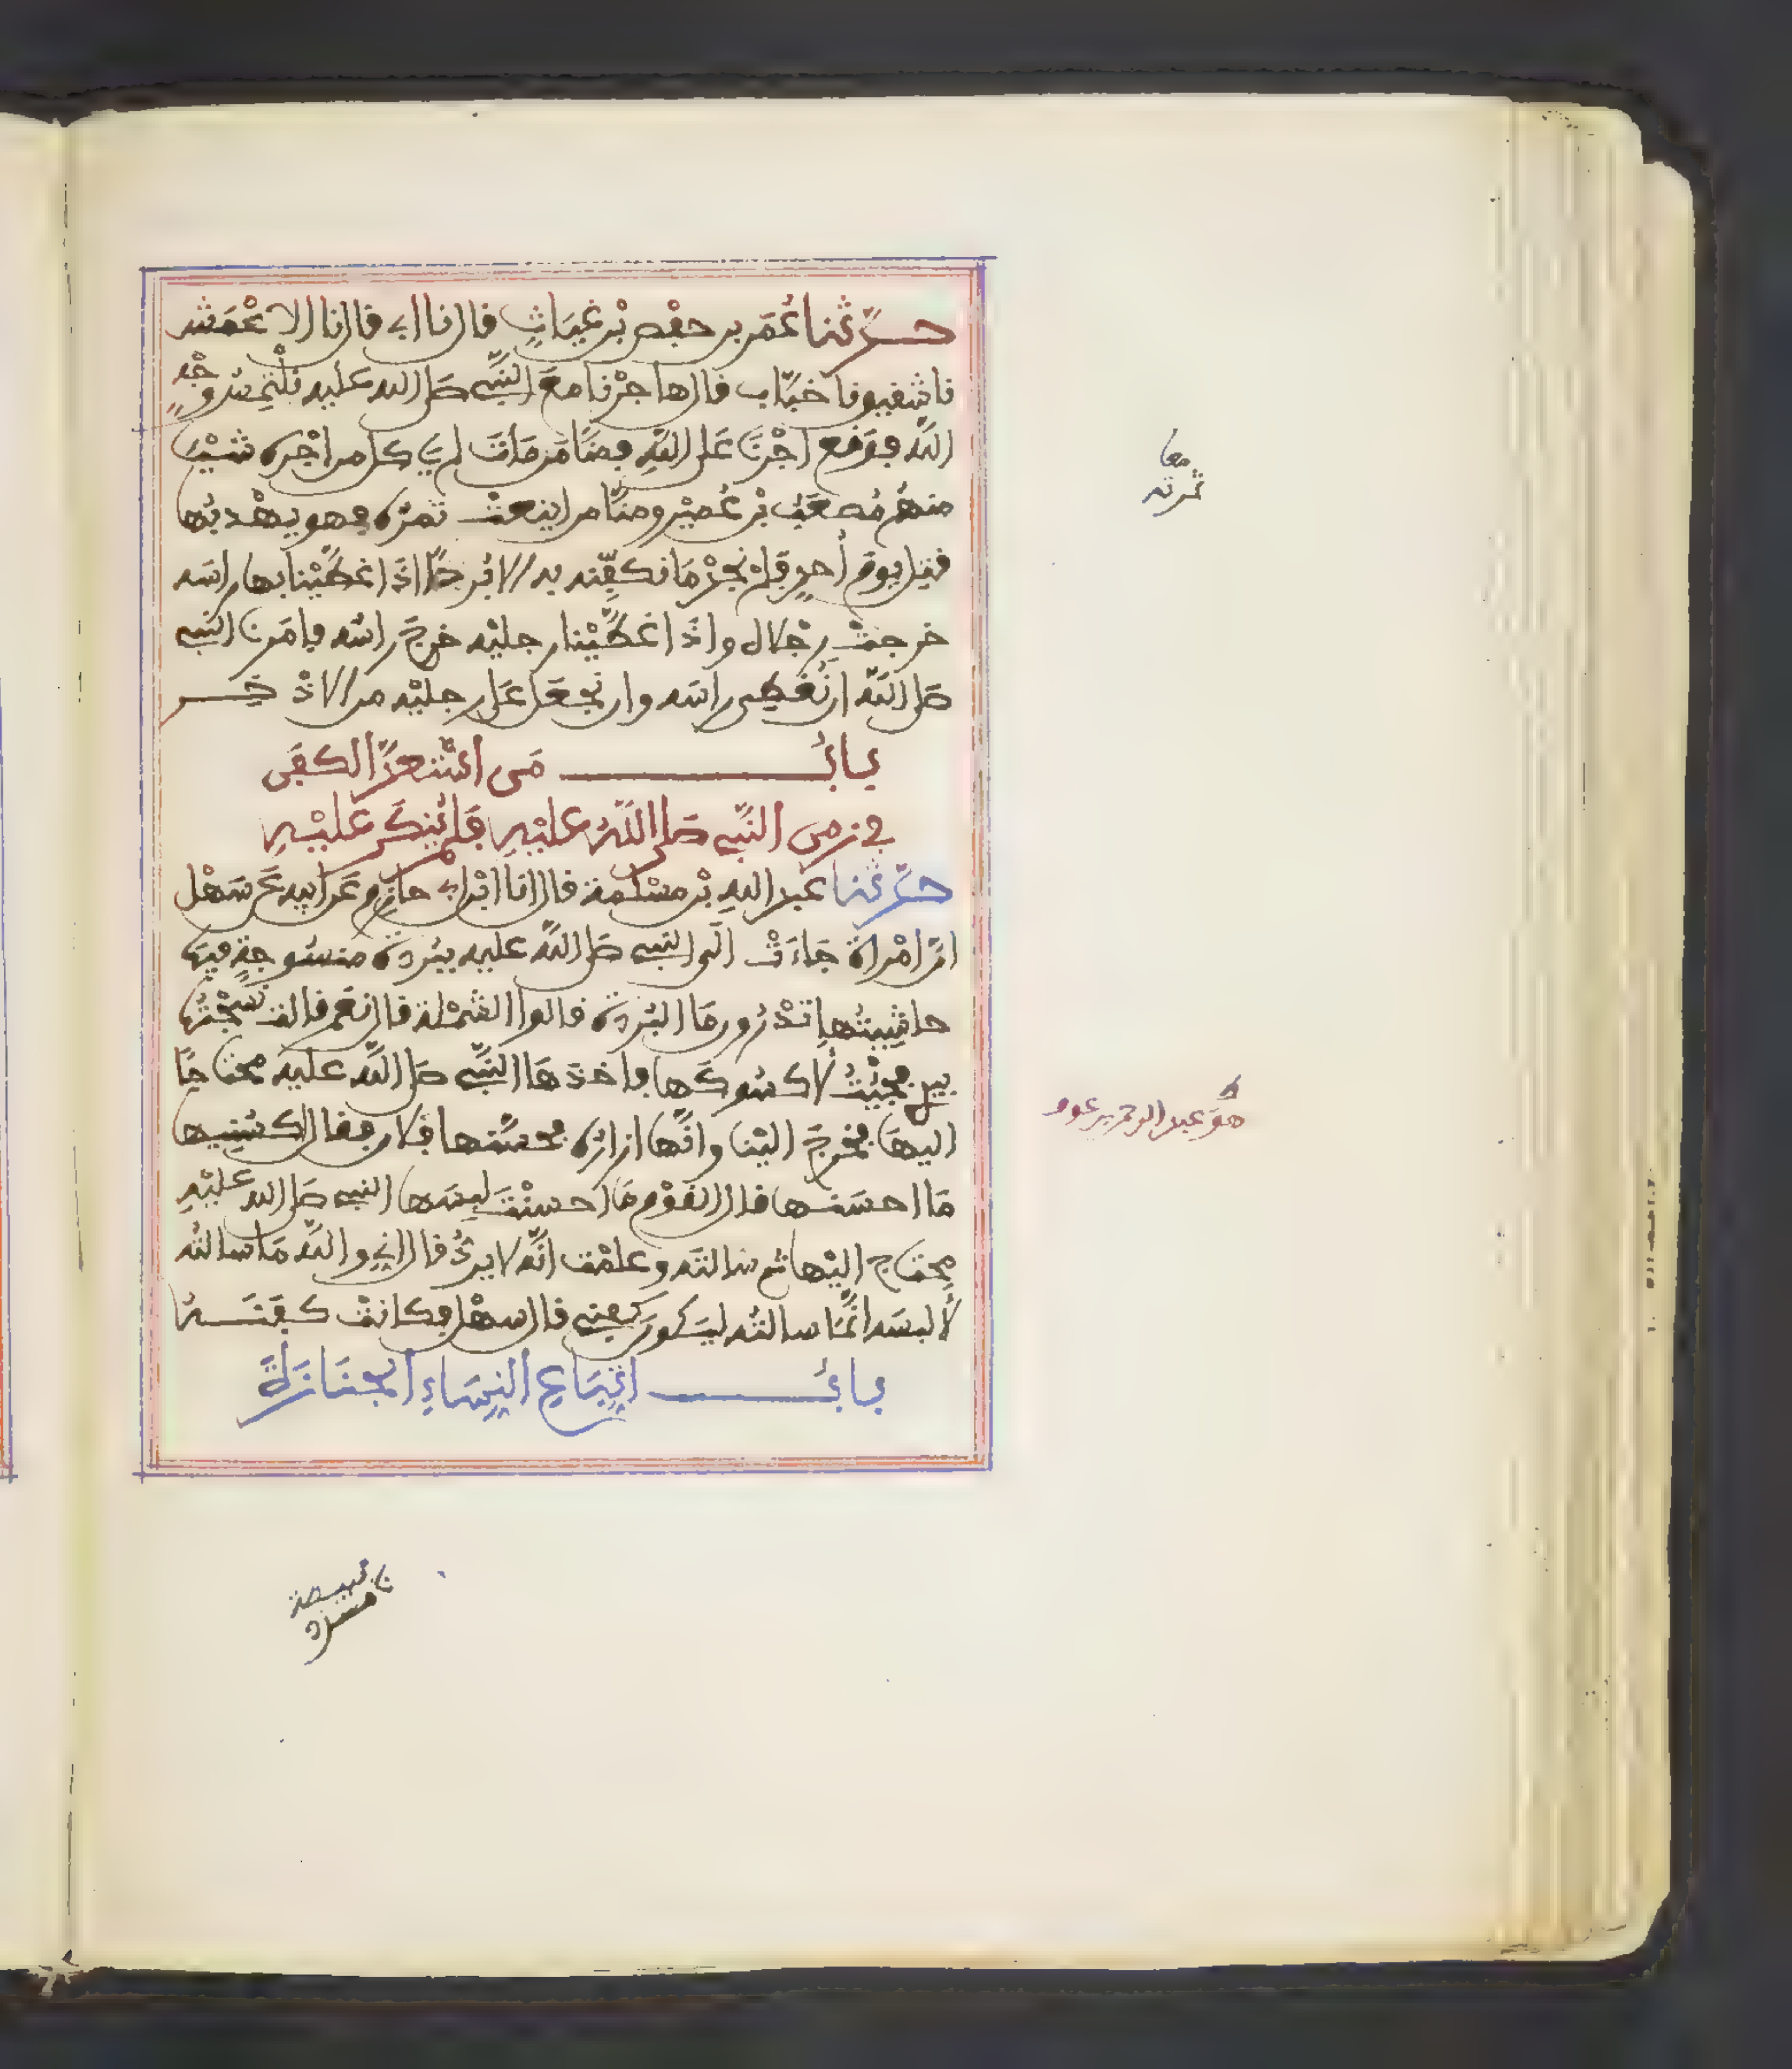 حدّثنا عُمَر بن حفْص بْن غِيَاثٍ قال نا ابي قال نا الاعْمَش
نا شَقيق نا خبّاب قال هاجرْنا معَ النّبي صَلى الله عليه نلْتَمِسُ وَجْهَ
اللّه فوَقع اجْرُنَا عَلى اللّهِ فمنّا مَن مَاتَ لم ياكل من اجْره شَيْـٔا
منهُم مُصعَبُ بْن عُمَيْر ومنّا من اينعَتْ ثمرَتُه فهو يهْدبُها
قتل يومَ أحدٍ فلمْ نجِدْ مَا نكفّنه به الا بُردةً اذَا غطّيْنا بها راسَه
خرجتْ رِجْلاه واذَا غطّيْنا رجليْه خرجَ راسُه فامَرنا النبي
صَلى اللّه ان نُغطي راسَه وان نجعَل عَلى رجليْه من الاذْخِــر
بابُ مَن اسْتَعدَّ الكفَن
في زمن النّبي صَلى اللّهُ عليْهِ فلم يُنكَر عليْهِ
حدّثنا عَبد اللهِ بْن مسْلمة قال نا ابْن ابي حازمٍ عَن ابيه عَن سَهْل
انّ امْراةً جَاءَتْ الى النبي صَلى اللّه عليه ببُردة منسُوجةٍ فيهَا
حاشيتُها اتدْرُون مَا البُردة قالوا الشمْلة قال نعَم قالت نسَجْتُها
بيدي فجئْتُ لأكسُوكَها فاخذهَا النّبي صَلى اللّه عليه محتاجًا
اليهَا فخرجَ اليْنا وانّها ازاره فحسّنها فلان فقال اكسُنِيها
مَا احسَنها قال القوْم مَا احسنْتَ لبسَها النبي صَلى الله عليْهِ
محتاج اليْها ثم سالتَه وعلمْت انّه لا يردُّ قال اني واللّه مَا سالتُه
لألبسَه انّمَا سالتُه ليَكون كفني قال سهْل فكانتْ كفنَــه
بابُ اتّبَاع النّسَاءِ الجنَازةَ
معا
ثمرته
هوَ عبد الرحمن بن عوف
نا قبيصة